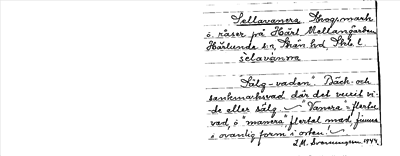 Sellavanera. Skogsmark
o. räser på Härl Mellangården
Härlunds sn, Skån hd, Skbl.
sèlavànəra
"Sälg-vaden". Bäck- och
sankmarksvad där det vuxit vi-
de eller sälg. "Vanera" flertal
vad, ö "manera" flertal mad, finnes
o vanlig form i orten!
J.M. Svenungsson 1944